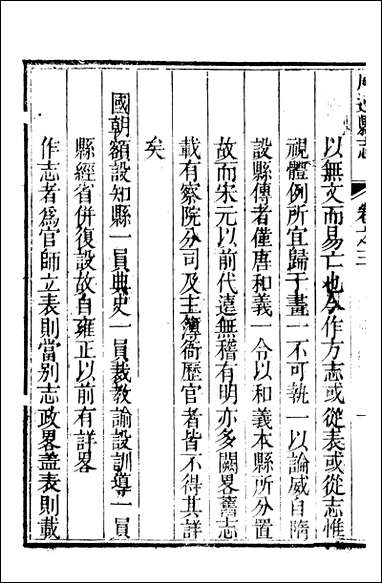 縣志
卷
以無文而易亡也今作方志或從表或從志惟
視體例所宜歸于畫一不可執一以論威自隋
設縣傳者僅唐和義一令以和義本縣所分置
故而宋元以前代遠無稽有明亦多闕畧舊志
載有察院分司及主簿衙歴官者皆不得其詳
矣
國朝額設知縣一員典史一員裁教諭設訓導一員
縣經省併復設故自雍正以前有詳畧
作志者爲官師立表則當别志政畧葢表則載